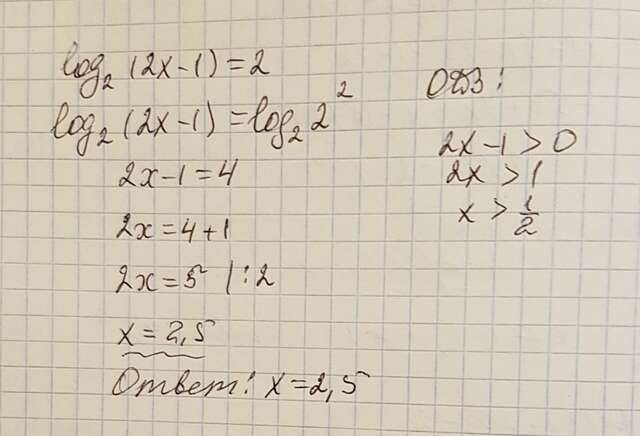 log₂(2x-1)=2
log₂(2x-1)=log₂2²
2x-1=4
2x=4+1
2x=5 |:2
x=2,5
Ответ: x=2,5
ОДЗ:
2x-1>0
2x>1
x>1/2